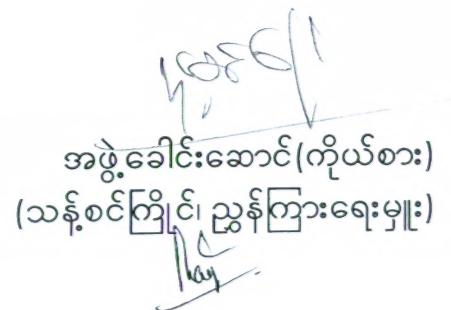 အဖွဲ့ခေါင်းဆောင်(ကိုယ်စား)
(သန့်စင်ကြိုင်၊ ညွှန်ကြားရေးမှူး)